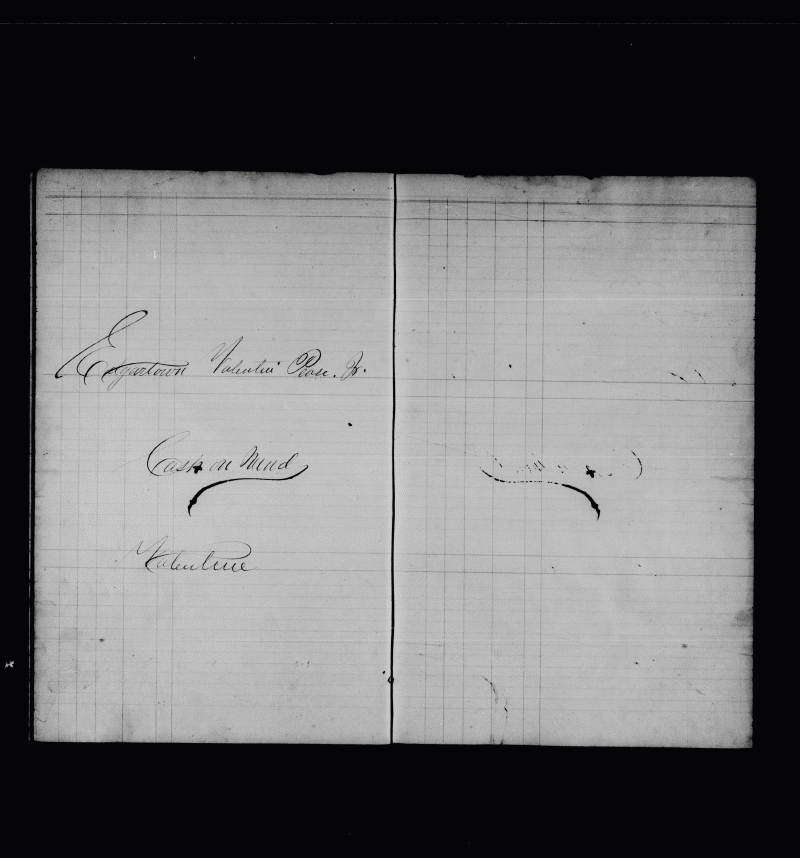 Edgartown Valentine Pease. Jr.
Cash on
Valentine